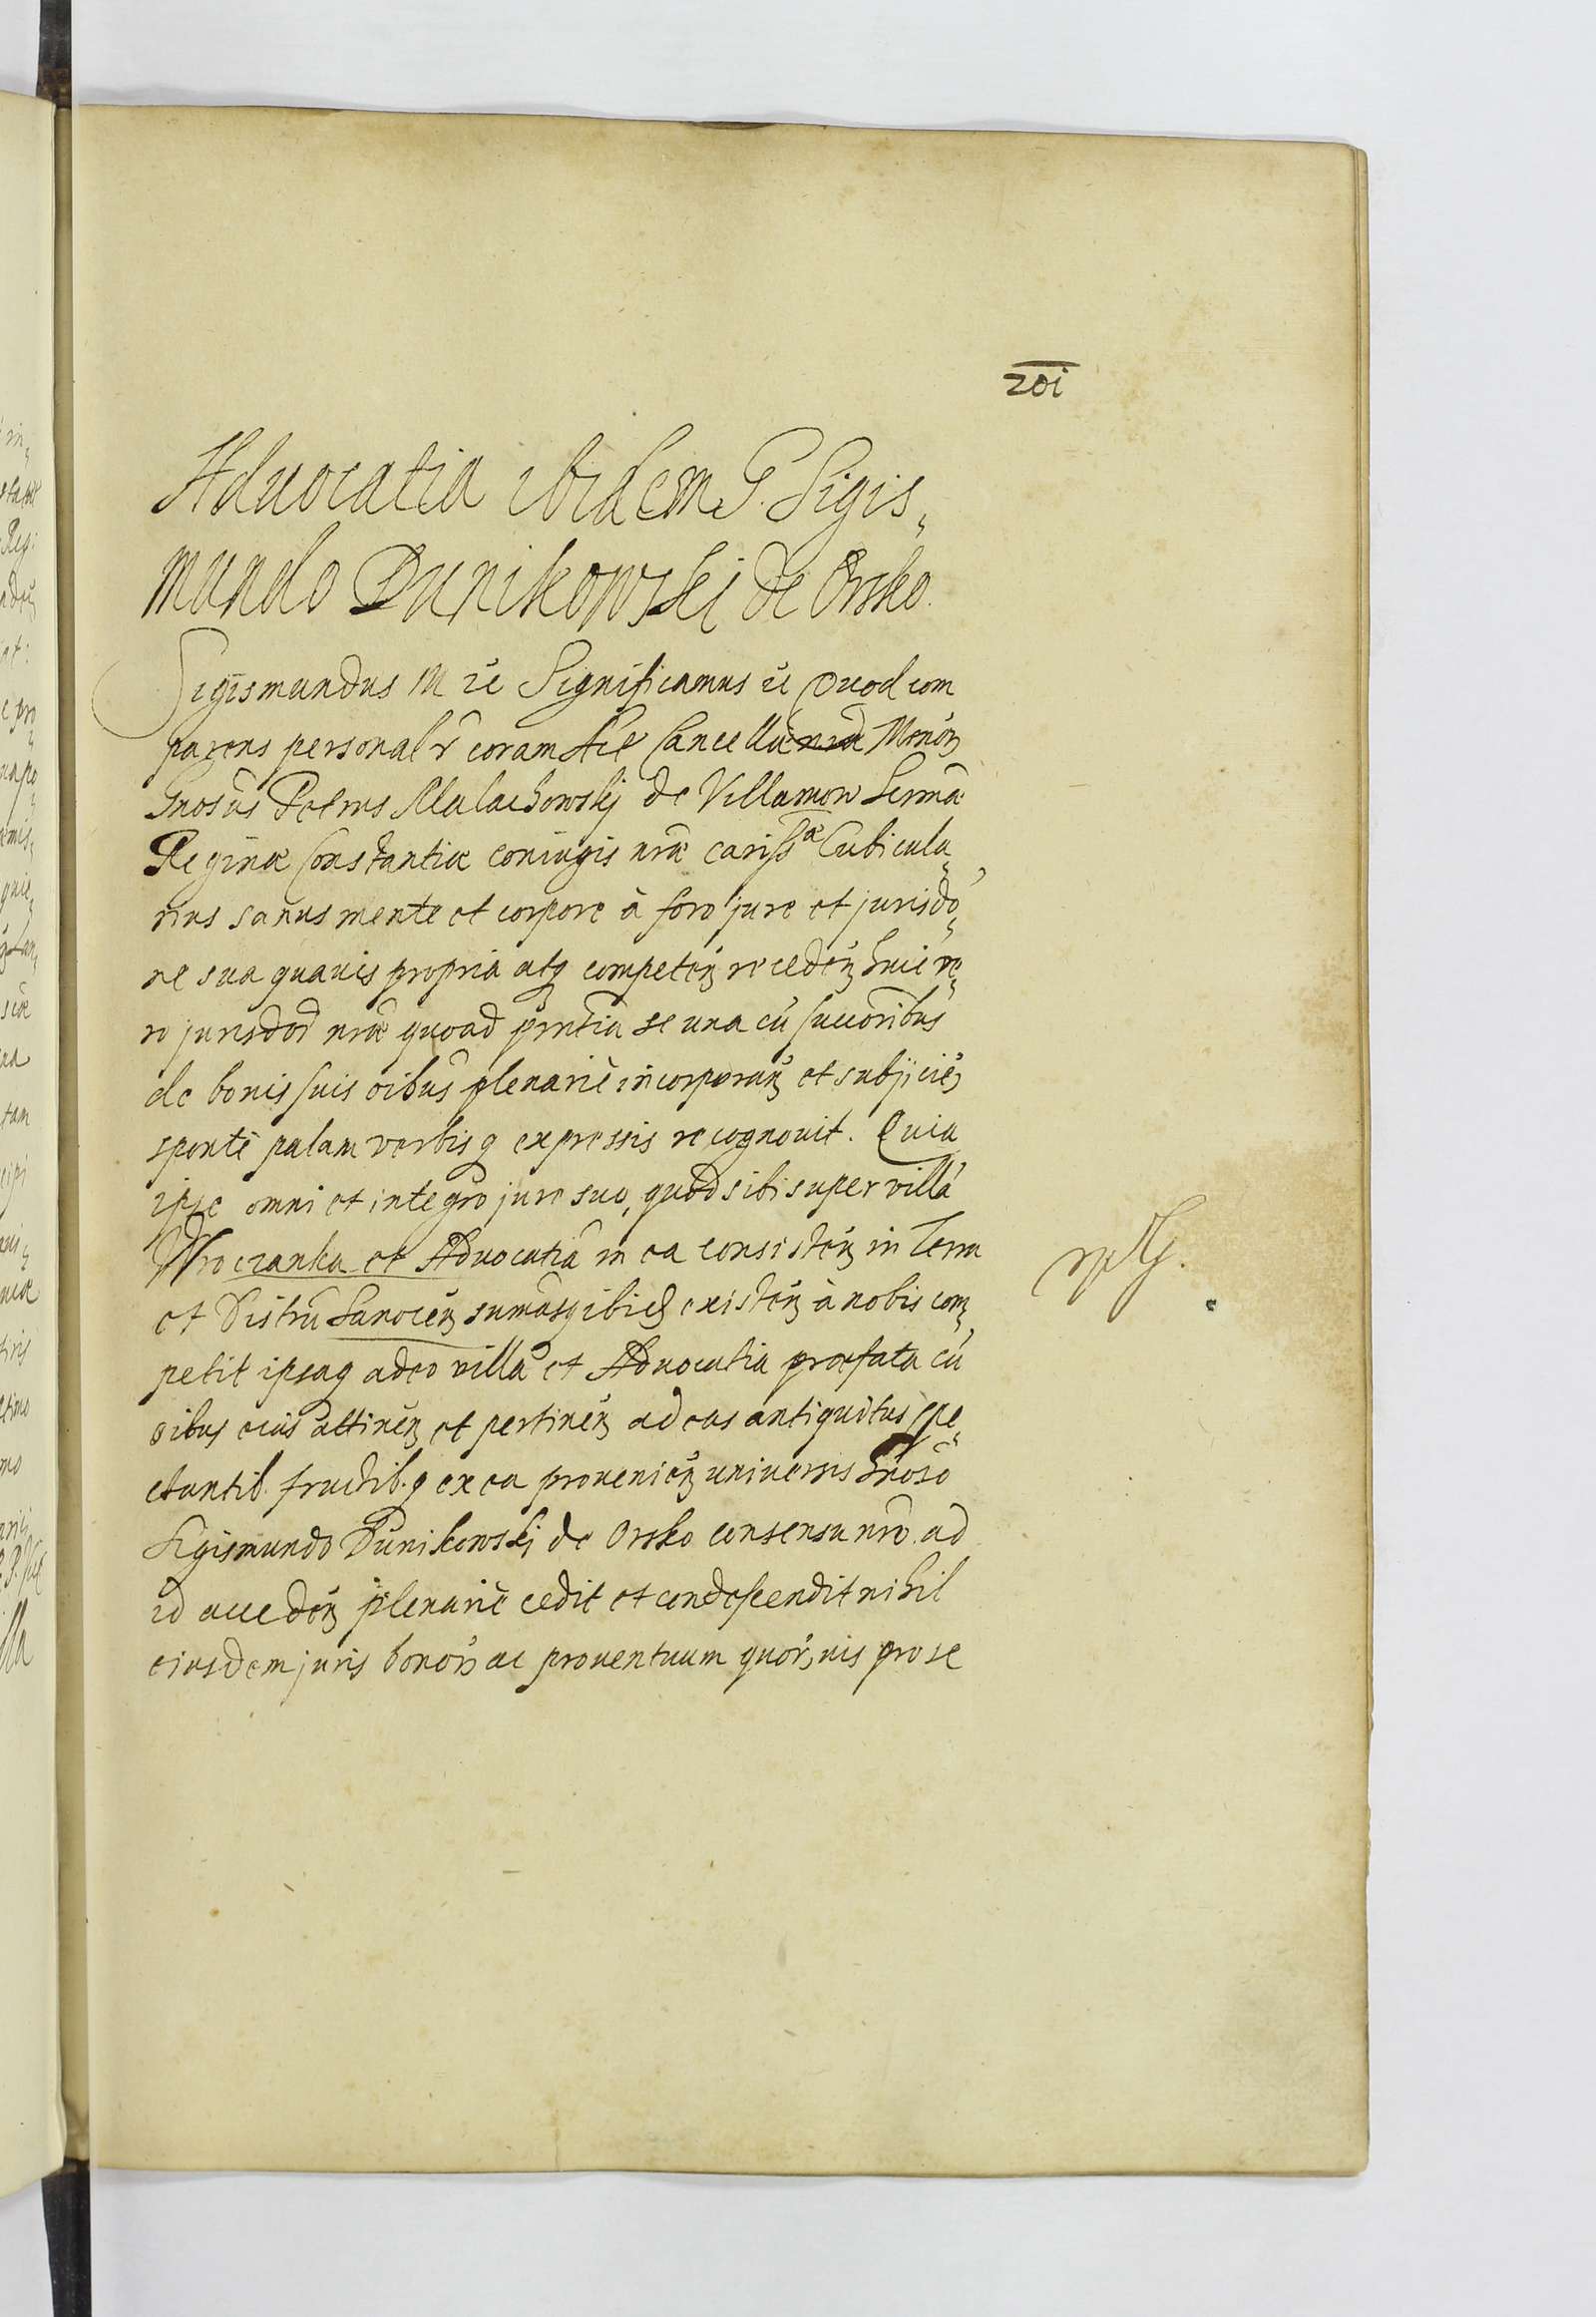 201
Aduocatia ibidem G. Sigis„
mundo Dunikowski de Orsko.
Sigismundus III etc Significamus etc Quod com
parens personalr coram Actis Cancellae Minoris
Gnosus Petrus Malachowskj de Villamow Sermae
Reginae Constantiae coniugis nrae cariss^ae Cubicula„
rius sanus mente et corpore à foro jure et jurisdō„
ne sua quauis propria atq competeñ recedeñ huic ve„
ro jurisdōī nrae quoad prntia se una cū succoribus
de bonis suis oibus plenariè incorporañ et subijcień
spontè palam verbisq expressis recognouit. Quia
ipse omni et integro jure suo, quod sibi super villā
Wroczanka et Aduocatiā in ea consisteñ in Terra
et Distrū Sanoceñ sumasq ibid existeñ à nobis com„
petit ipsaq adeo villa et Aduocatia praefata cū
oibus eius attineñ et pertineñ ad eas antiquitus spe„
ctantib. fructib.q ex ea prouenieñ uniuersis Gnoso
Sigismundo Dunikowskj de Orsko consensu nro ad
id accedeñ plenariè cedit et condescendit nihil
eiusdem juris bonor ac prouentuum quoruis pro se